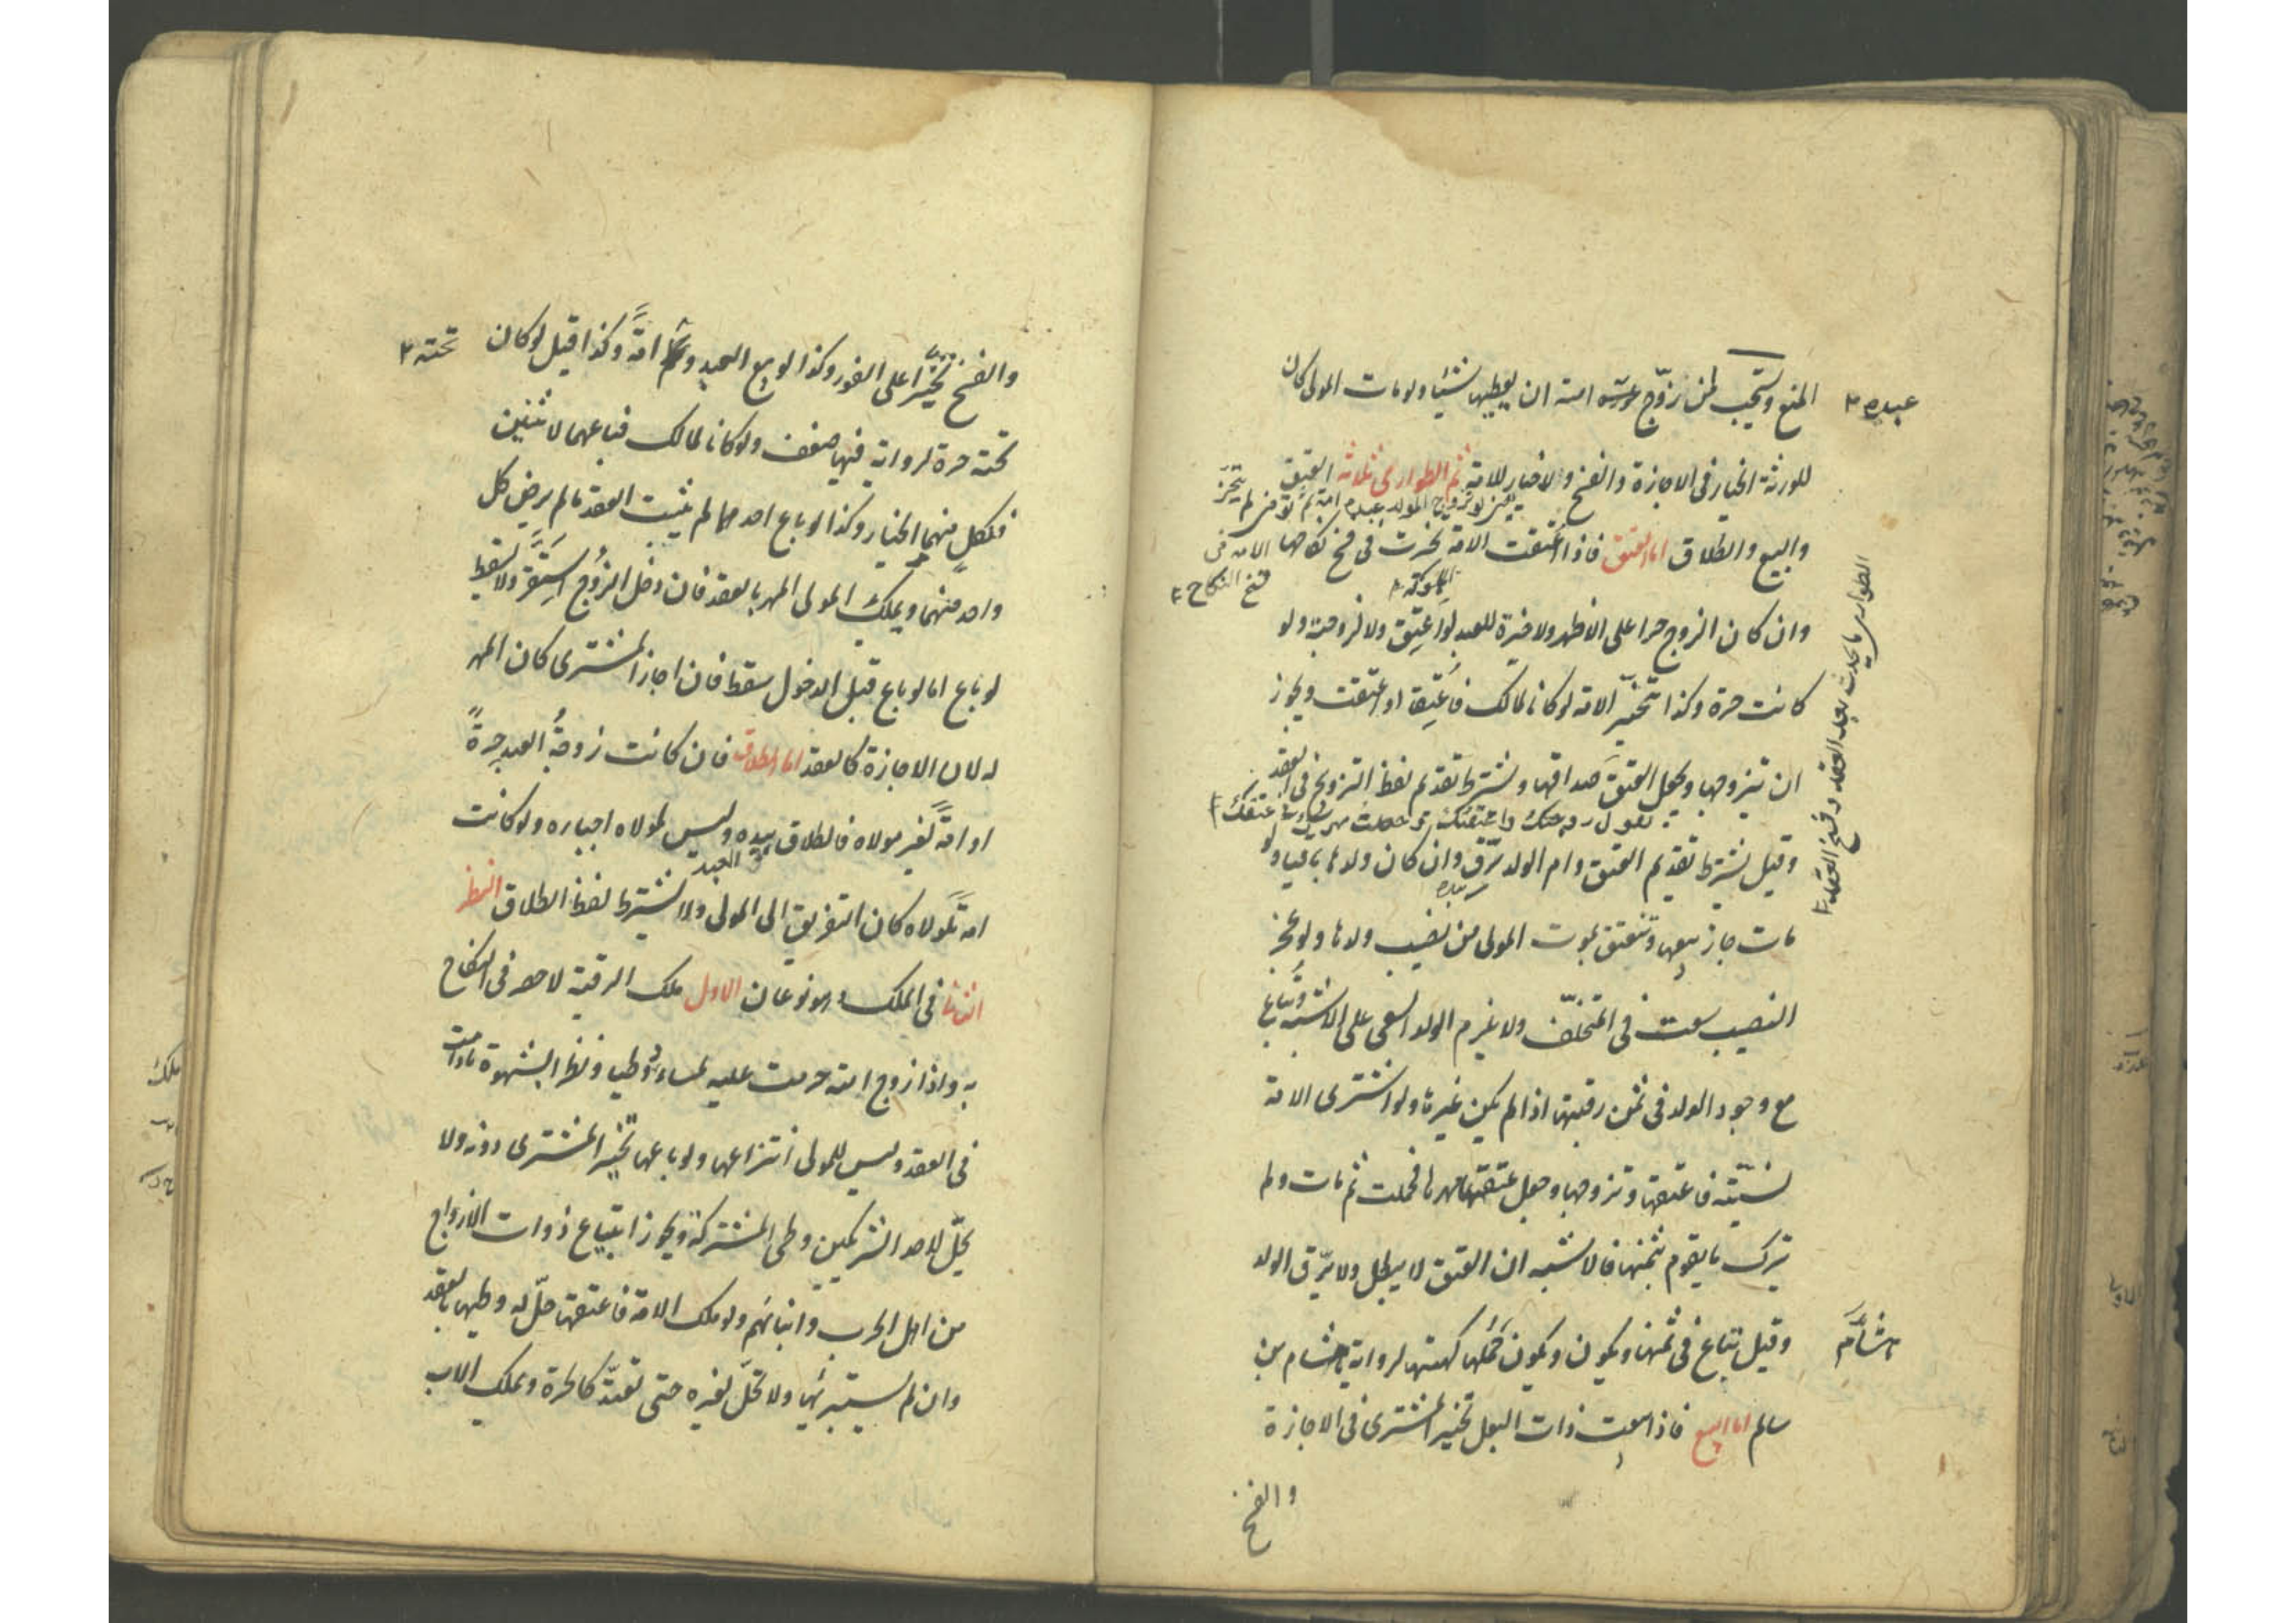 المنع ويستحب لمن زوّج عبده امته ان يعطيها شيئا ولو مات المولى كان
عبده
للورثة الخيار فى الاجازة والفسخ ولا خيار للامة ثم الطوارى ثلاثة العتق
والبيع والطلاق اما العتق فاذا اعتقت الامة تخيرت فى فسخ نكاحها
الامة فى
فسخ النكاح
وان كان الزوج حرا على الاظهر ولا خيرة للعبد لو اعتق ولا لزوجته ولو
كانت حرة وكذا تتخير الامة لو كانا لمالك فاعتقا او اعتقت ويجوز
الطوارى ما يحدث بعد العقد وفسخ العقد
ان تتزوجها ويجعل العتق صداقها ويشترط تقديم لفظ التزويج فى العقد
وقيل يشترط تقديم العتق وام الولد رق وان كان ولدها باقيا ولو
مات جاز بيعها وتنعتق بموت المولى من نصيب ولدها ولو عجز
النصيب سعت فى المتخلف ولا يلزم الولد السعى على الاشبه وتباع
مع وجود الولد فى ثمن رقبتها اذا لم يكن غيرها ولو اشترى الامة
نسيئة فاعتقها وتزوجها وجعل عتقها مهرها فحملت ثم مات ولم
يترك ما يقوم بثمنها فالاشبه ان العتق لا يبطل ولا يرق الولد
وقيل تباع فى ثمنها ويكون ويكون حملها كهيئتها لرواية هشام بن
هشام
سالم اما البيع فاذا بيعت ذات البعل تخير المشترى فى الاجازة
والفسخ
والفسخ تخيرا على الفور وكذا لو بيع العبد وتحته امة وكذا قيل لو كان
تحته
تحته حرة لرواية فيها ضعف ولو كانا لمالك فباعهما لاثنين
فلكل منهما الخيار وكذا لو باع احدهما لم يثبت العقد ما لم يرض كل
واحد منهما ويملك المولى المهر بالعقد فان دخل الزوج استقر ولا يسقط
لو باع اما لو باع قبل الدخول سقط فان اجاز المشترى كان المهر
له لان الاجازة كالعقد اما الطلاق فان كانت زوجة العبد حرة
او امة لغير مولاه فالطلاق بيده وليس لمولاه اجباره ولو كانت
العبد
امة لمولاه كان التفريق الى المولى ولا يشترط لفظ الطلاق النظر
الثانى فى الملك وهو نوعان الاول ملك الرقبة لا حصر فى النكاح
به واذا زوج امته حرمت عليه لمسا ووطيا ونظرا بشهوة ما دامت
فى العقد وليس للمولى انتزاعها ولو باعها تخير المشترى دونه ولا
يحل لاحد الشريكين وطى المشتركة ويجوز ابتياع ذوات الازواج
من اهل الحرب وابنائهم ولو ملك الامة فاعتقها حل له وطيها بالعقد
وان لم يستبرئها ولا تحل لغيره حتى تعتد كالحرة ويملك الاب